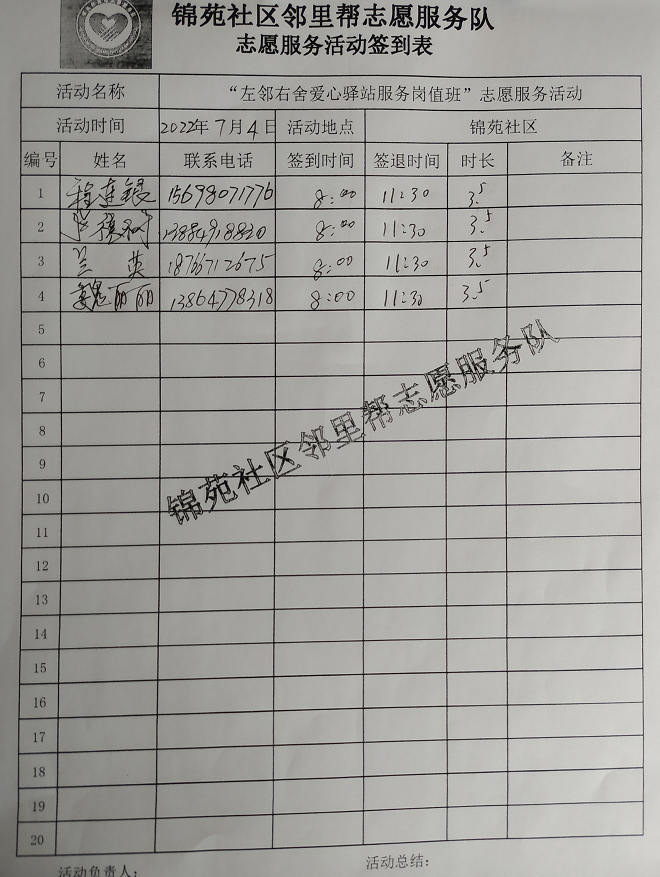 锦苑社区邻里帮志愿服务队
志愿服务活动签到表
活动名称 “左邻右舍爱心驿站服务岗值班”志愿服务活动
活动时间 2022年7月4日 活动地点 锦苑社区
编号 姓名 联系电话 签到时间 签退时间 时长 备注
1 程连银 15698071776 8:00 11:30 3.5
2 13884918820 8:00 11:30 3.5
3 兰英 18766712675 8:00 11:30 3.5
4 魏丽丽 13864778318 8:00 11:30 3.5
5
6
7
8
9
10
11
12
13
14
15
16
17
18
19
20
锦苑社区邻里帮志愿服务队
活动负责人: 活动总结: